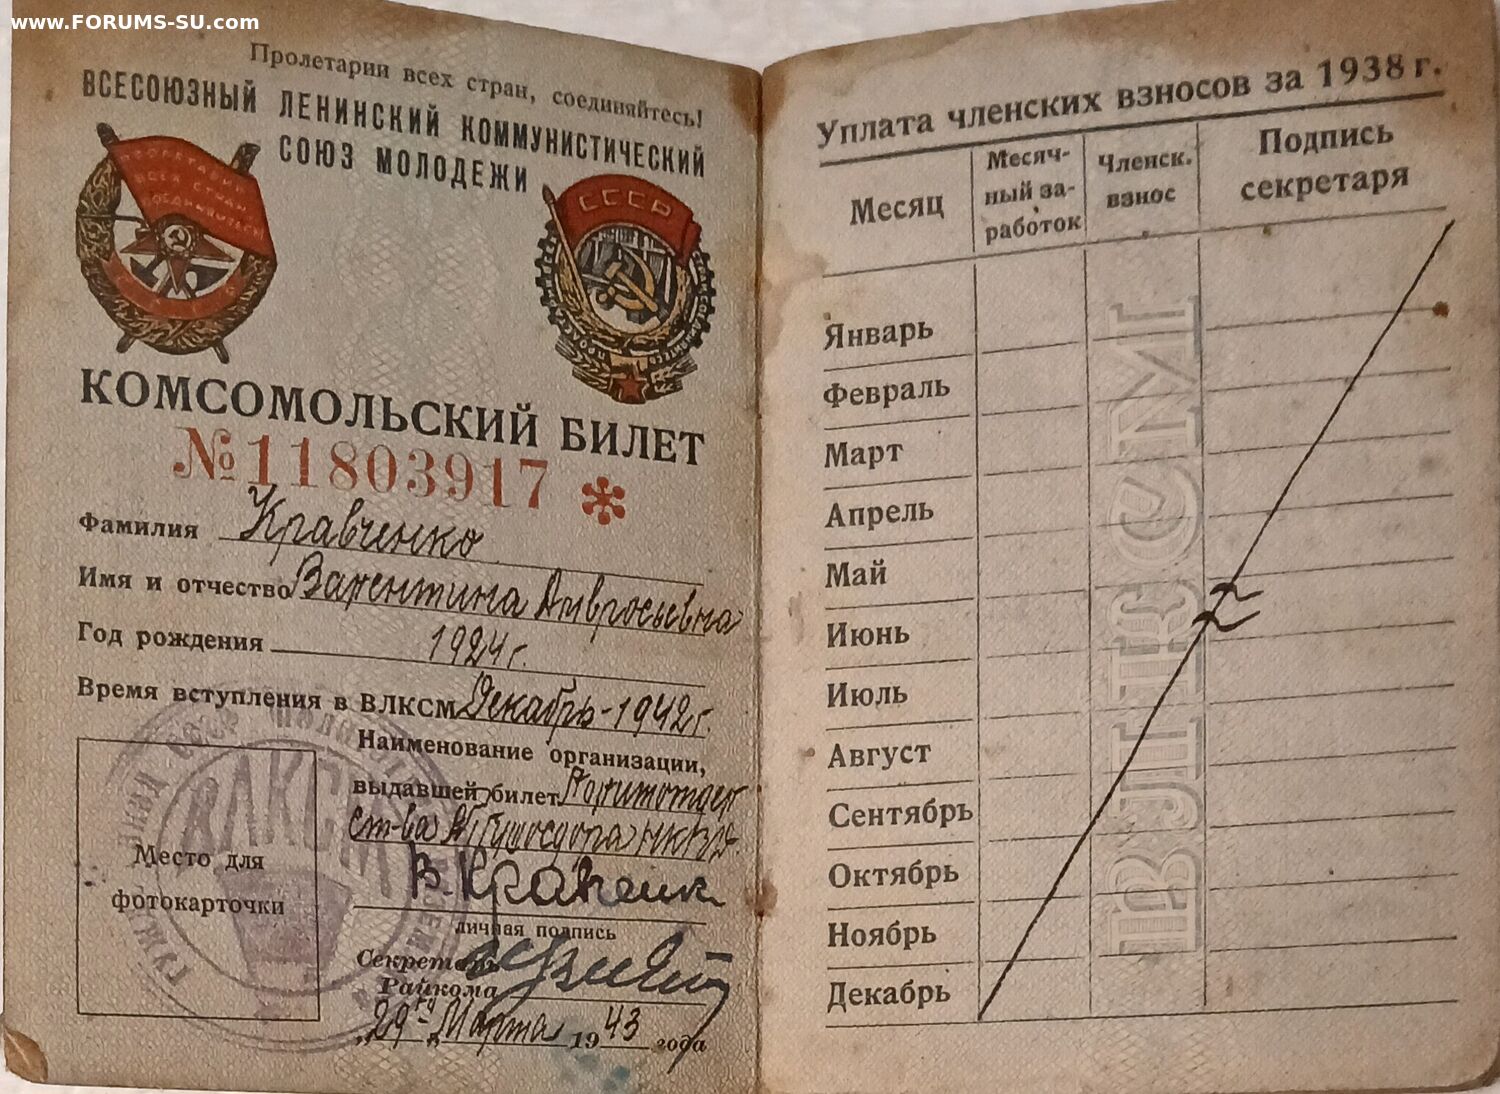 www.FORUMS-SU.com
Пролетарии всех стран, соединяйтесь!
ВСЕСОЮЗНЫЙ ЛЕНИНСКИЙ КОММУНИСТИЧЕСКИЙ
СОЮЗ МОЛОДЕЖИ
ПРОЛЕТАРИИ
ВСЕХ СТРАН
СОЕДИНЯЙТЕСЬ
СССР
КОМСОМОЛЬСКИЙ БИЛЕТ
№11803917
Фамилия Кравченко
Имя и отчество Валентина Амвросьевна
Год рождения 1924 г.
Время вступления в ВЛКСМ Декабрь-1942г.
Наименование организации,
выдавшей билет Политотдел
ст-ва НКВД
личная подпись
Секретарь
Райкома
„29" Марта 1943 года
Место для
фотокарточки
ВЛКСМ
Уплата членских взносов за 1938 г.
Месяц
Месяч-
ный за-
работок
Членск.
взнос
Подпись
секретаря
Январь
Февраль
Март
Апрель
Май
Июнь
Июль
Август
Сентябрь
Октябрь
Ноябрь
Декабрь
ВЛКСМ